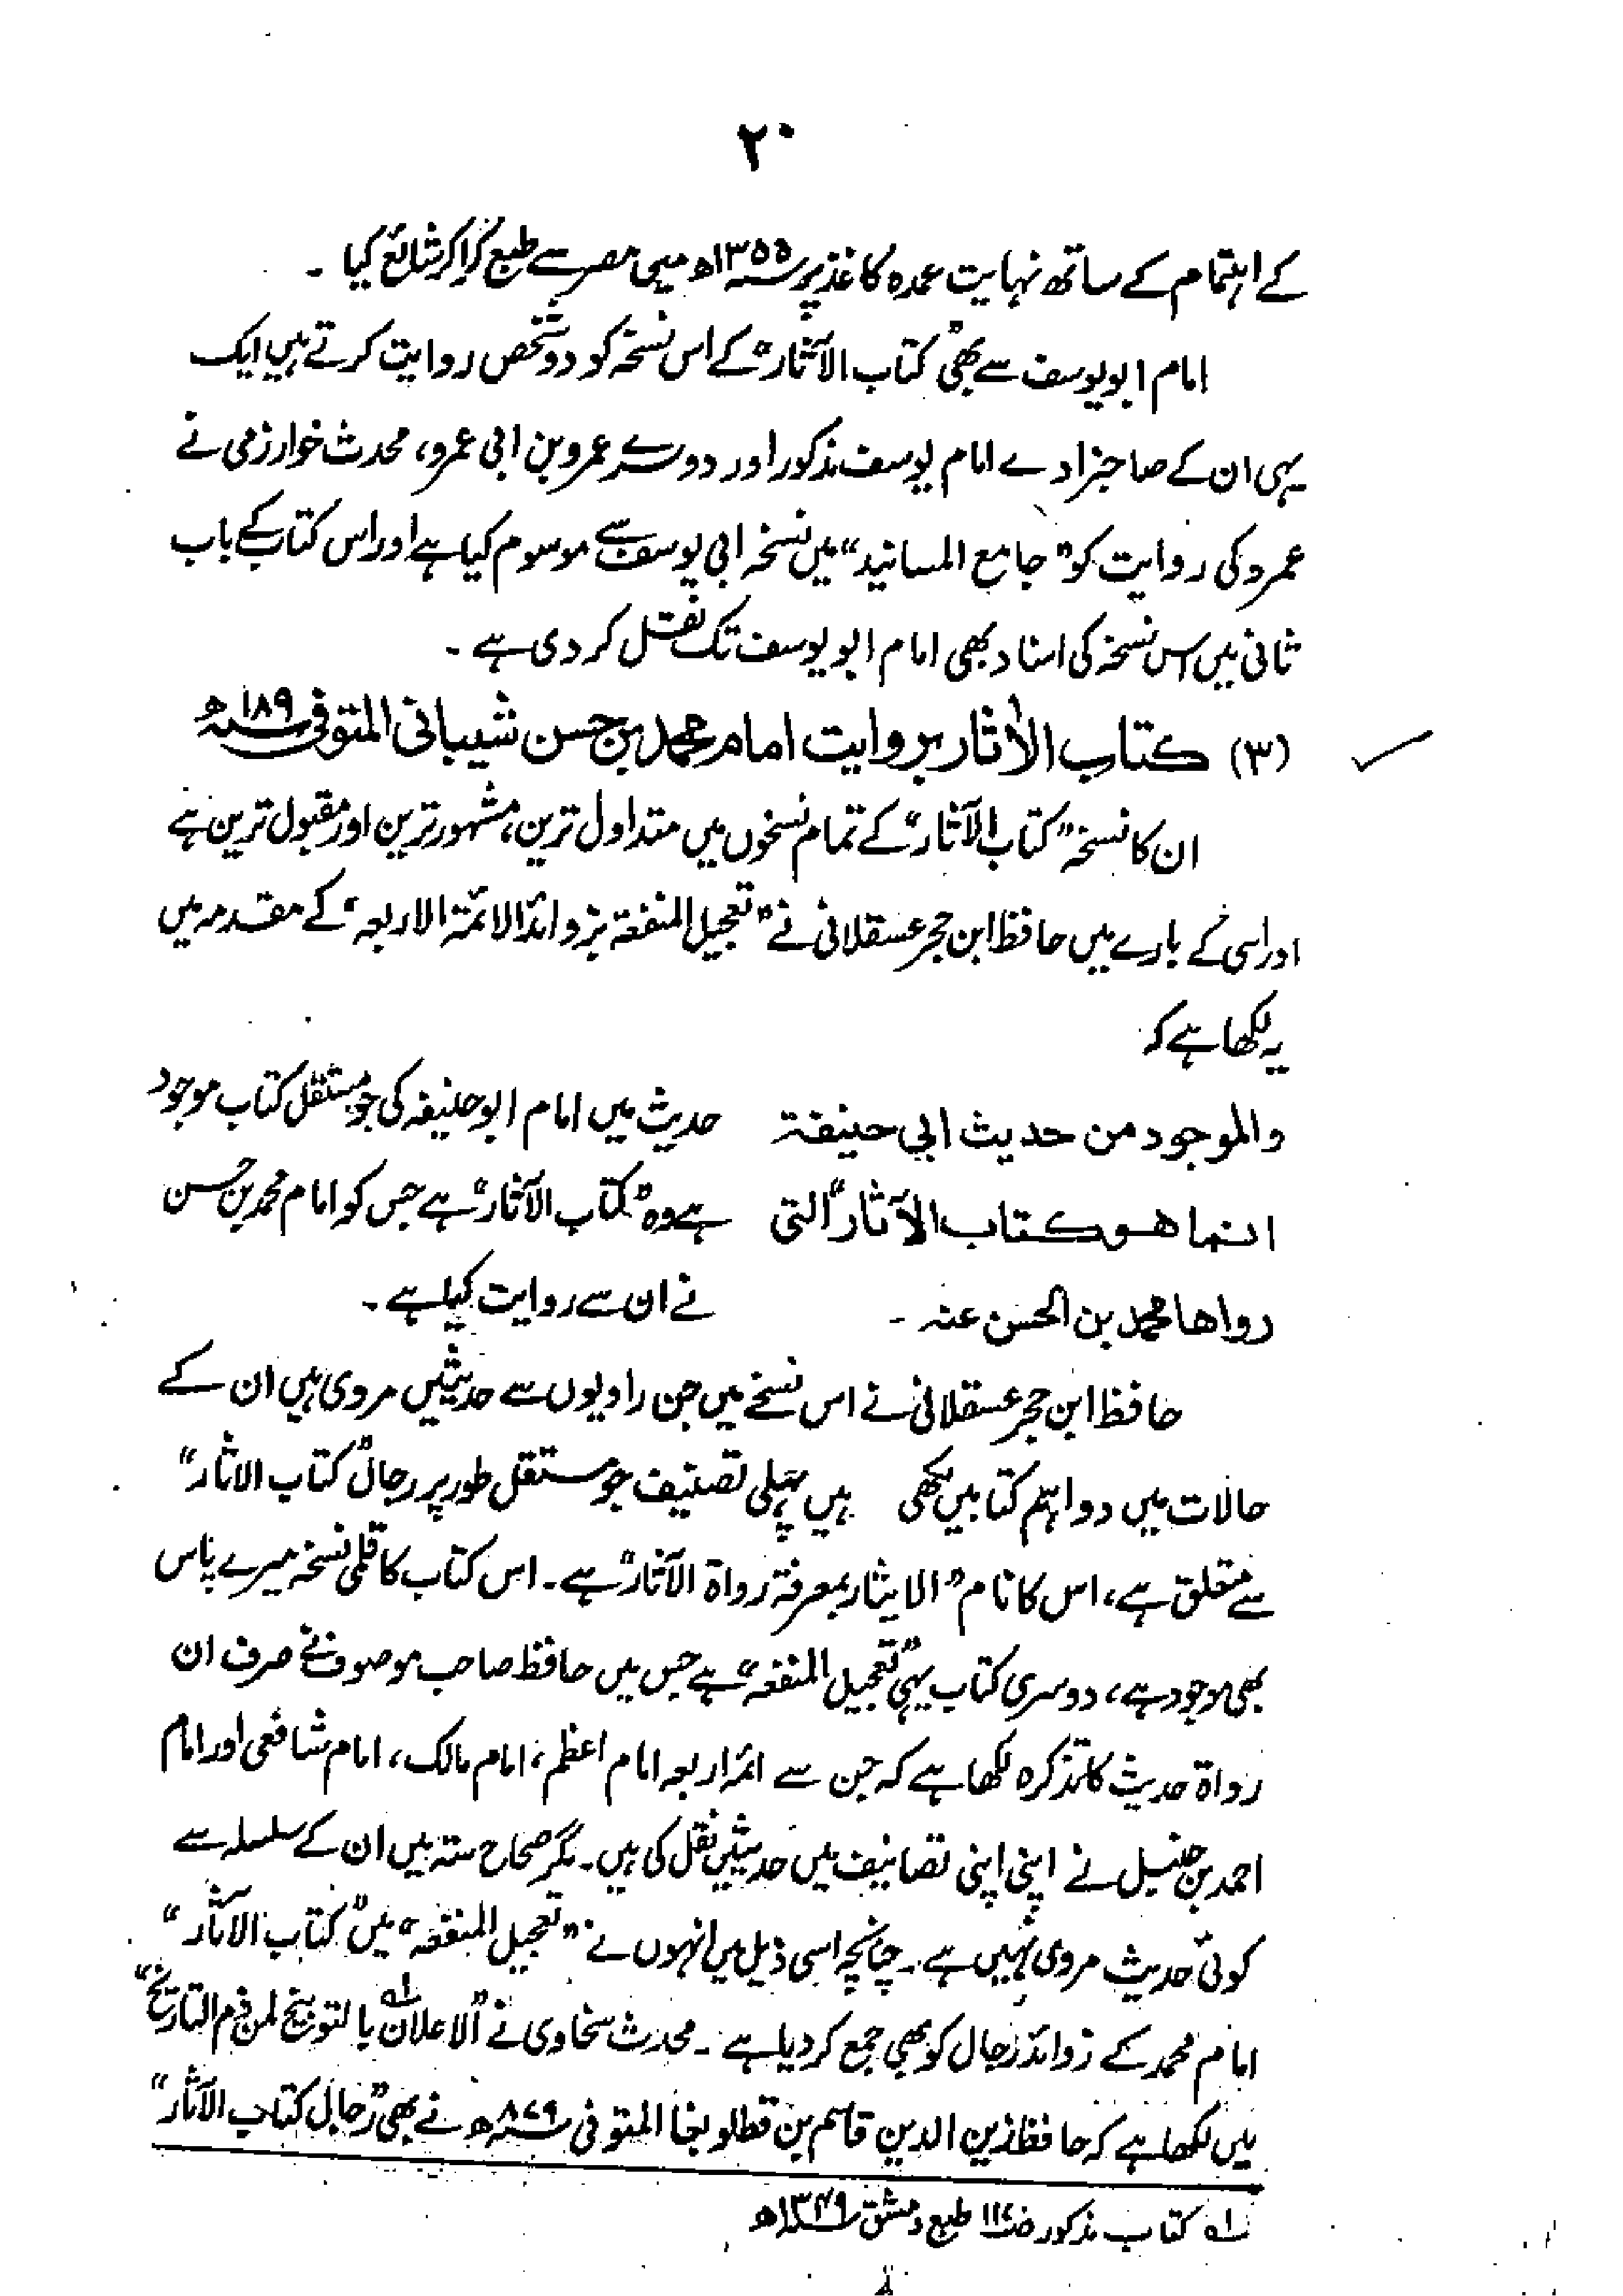 ۲۰
کے اہتمام کے ساتھ نہایت عمدہ کاغذ پر ۱۳۵۵ھ میں مصر سے طبع کرا کر شائع کیا ۔
امام ابو یوسف سے بھی "کتاب الآثار" کے اس نسخہ کو دو شخص روایت کرتے ہیں ایک
یہی ان کے صاحبزادے امام یوسف مذکور اور دوسرے عمرو بن ابی عمرو، محدث خوارزمی نے
عمرو کی روایت کو "جامع المسانید" میں نسخہ ابی یوسف سے موسوم کیا ہے اور اس کتاب کے باب
ثانی میں اس نسخہ کی اسناد بھی امام ابو یوسف تک نقل کر دی ہے ۔
(۳) کتاب الآثار بروایت امام محمد بن حسن شیبانی المتوفی ۱۸۹ھ
ان کا نسخہ "کتاب الآثار" کے تمام نسخوں میں متداول ترین، مشہور ترین اور مقبول ترین ہے
اور اسی کے بارے میں حافظ ابن حجر عسقلانی نے "تعجیل المنفعۃ بزوائد الائمۃ الاربعہ" کے مقدمہ میں
یہ لکھا ہے کہ
والموجود من حدیث ابی حنیفۃ حدیث میں امام ابو حنیفہ کی جو مستقل کتاب موجود
انما ھو کتاب الآثار" التی ہے وہ "کتاب الآثار" ہے جس کو امام محمد بن حسن
رواھا محمد بن الحسن عنہ ۔ نے ان سے روایت کیا ہے ۔
حافظ ابن حجر عسقلانی نے اس نسخے میں جن راویوں سے حدیثیں مروی ہیں ان کے
حالات میں دو اہم کتابیں لکھی ہیں پہلی تصنیف جو مستقل طور پر رجال "کتاب الاثار"
سے متعلق ہے، اس کا نام "الایثار بمعرفۃ رواۃ الآثار" ہے ۔ اس کتاب کا قلمی نسخہ میرے پاس
بھی موجود ہے، دوسری کتاب یہی "تعجیل المنفعہ" ہے جس میں حافظ صاحب موصوف نے صرف ان
رواۃ حدیث کا تذکرہ لکھا ہے کہ جن سے ائمہ اربعہ امام اعظم، امام مالک، امام شافعی اور امام
احمد بن حنبل نے اپنی اپنی تصانیف میں حدیثیں نقل کی ہیں ۔ مگر صحاح ستہ میں ان کے سلسلہ سے
کوئی حدیث مروی نہیں ہے ۔ چنانچہ اسی ذیل میں انہوں نے "تعجیل المنفعہ" میں "کتاب الآثار"
امام محمد کے زوائد رجال کو بھی جمع کر دیا ہے ۔ محدث سخاوی نے "الاعلان بالتوبیخ لمن ذم التاریخ"لہ
میں لکھا ہے کہ حافظ زین الدین قاسم بن قطلوبغا المتوفی ۸۷۹ھ نے بھی "رجال کتاب الآثار"
لہ کتاب مذکور ص۱۱۷ طبع دمشق ۱۳۴۹ھ